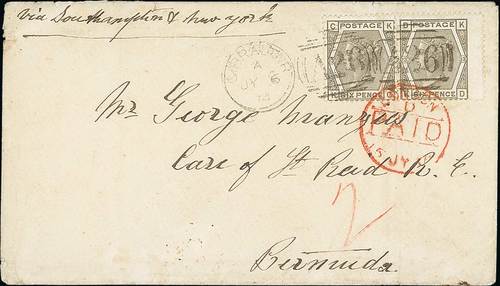 via Southampton & New York
C POSTAGE K
K SIX PENCE C
D POSTAGE K
K SIX PENCE D
GIBRALTAR
A
JY 6
A26
LONDON
PAID
15 JY
Mr George
Care of St Read R. E.
2
Bermuda.